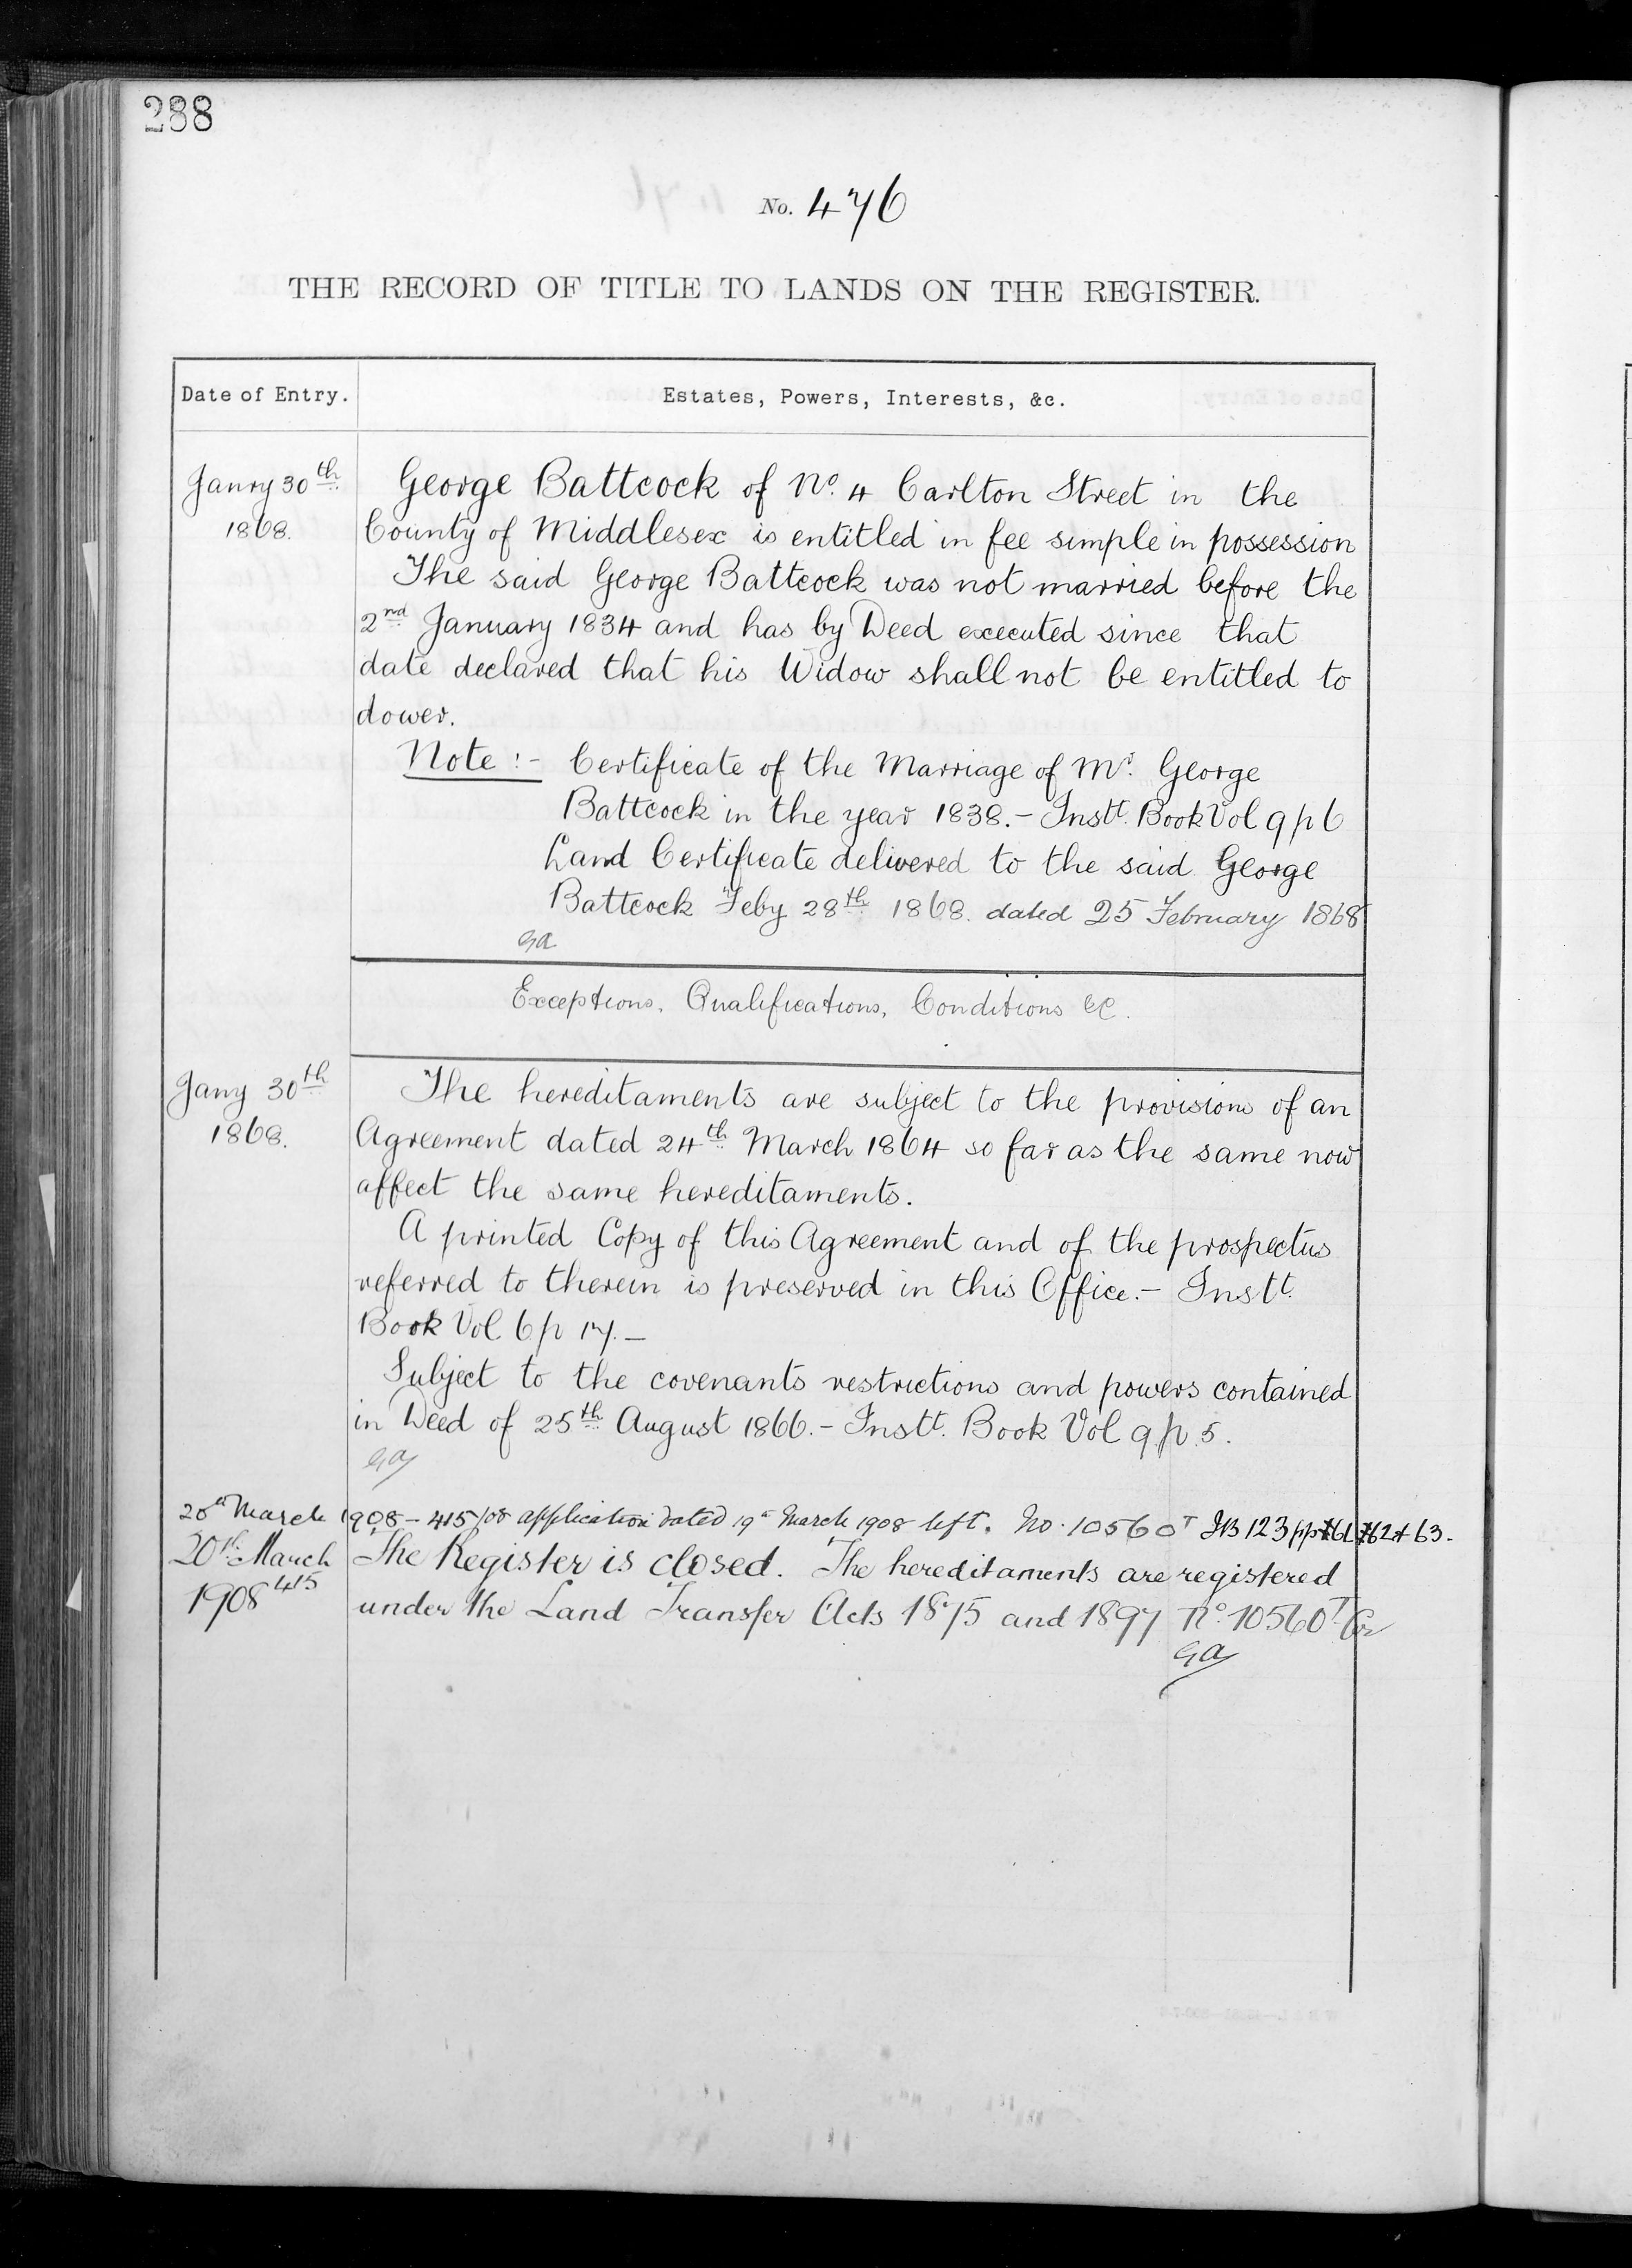 288
No. 476
THE RECORD OF TITLE TO LANDS ON THE REGISTER.
Date of Entry.
Estates, Powers, Interests, &c.
Janry 30th
1868.
George Battcock of No. 4 Carlton Street in the
County of Middlesex is entitled in fee simple in possession
The said George Battcock was not married before the
2nd January 1834 and has by Deed executed since that
date declared that his Widow shall not be entitled to
dower.
Note :- Certificate of the Marriage of Mr. George
Battcock in the year 1838.- Instt. Book Vol 9 p 6
Land Certificate delivered to the said George
Battcock Feby 28th 1868. dated 25 February 1868
GA
Exceptions, Qualifications, Conditions &c.
Jany 30th
1868.
The hereditaments are subject to the provisions of an
Agreement dated 24th March 1864 so far as the same now
affect the same hereditaments.
A printed Copy of this Agreement and of the prospectus
referred to therein is preserved in this Office.- Instt.
Book Vol 6 p 17.-
Subject to the covenants restrictions and powers contained
in Deed of 25th August 1866.- Instt. Book Vol 9 p. 5.
GA
20th March 1908 - 415/08 application dated 19th March 1908 left. No. 10560T IB 123 pp 61 62 + 63.
20th March
1908 415
The Register is closed. The hereditaments are registered
under the Land Transfer Acts 1875 and 1897 No. 10560T
GA